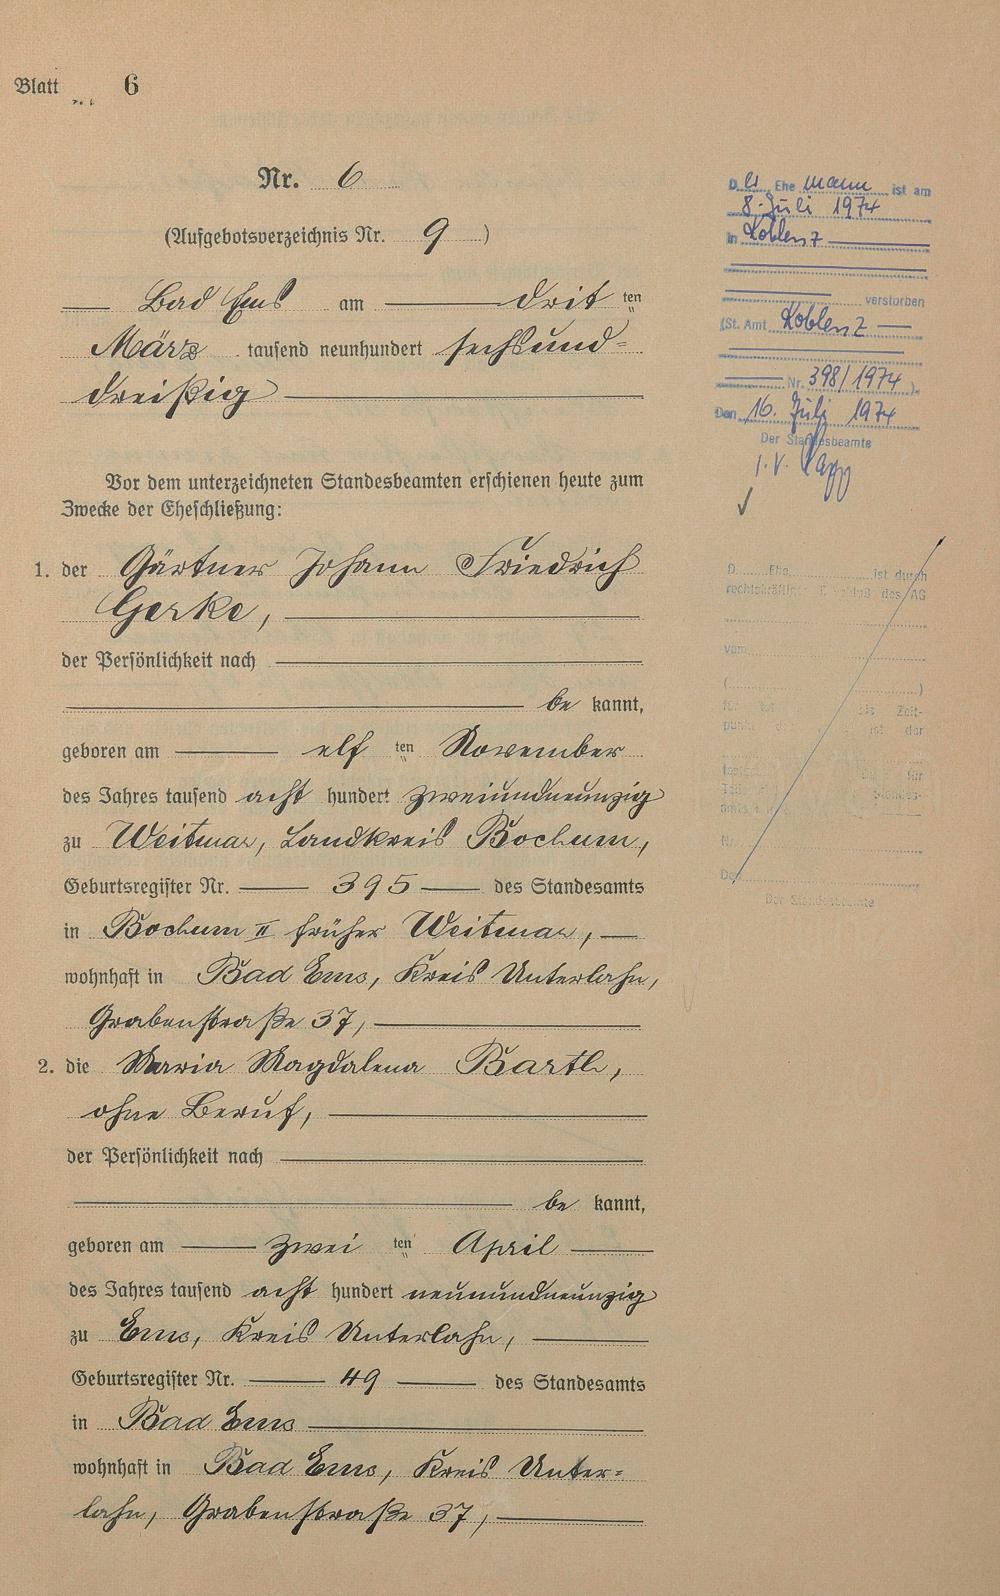 Blatt 6
Nr. 6
(Aufgebotsverzeichnis Nr. 9)
Bad Ems am drit ten
März tausend neunhundert sechsund-
dreißig
Vor dem unterzeichneten Standesbeamten erschienen heute zum
Zwecke der Eheschließung:
1. der Gärtner Johann Friedrich
Gerke,
der Persönlichkeit nach
be kannt,
geboren am elf ten November
des Jahres tausend acht hundert zweiundneunzig
zu Weitmar, Landkreis Bochum,
Geburtsregister Nr. 395 des Standesamts
in Bochum II früher Weitmar,
wohnhaft in Bad Ems, Kreis Unterlahn,
Grabenstraße 37,
2. die Maria Magdalena Barth,
ohne Beruf,
der Persönlichkeit nach
be kannt,
geboren am zwei ten April
des Jahres tausend acht hundert neunundneunzig
zu Ems, Kreis Unterlahn,
Geburtsregister Nr. 49 des Standesamts
in Bad Ems
wohnhaft in Bad Ems, Kreis Unter-
lahn, Grabenstraße 37,
D er Ehe mann ist am
8. Juli 1974
in Koblenz
verstorben
(St. Amt Koblenz
Nr. 398/1974).
Den 16. Juli 1974
Der Standesbeamte
i. V.
D Ehe ist durch
des AG
vom
( )
Zeit-
ist der
für
Standes-
Nr.
Den
Der Standesbeamte